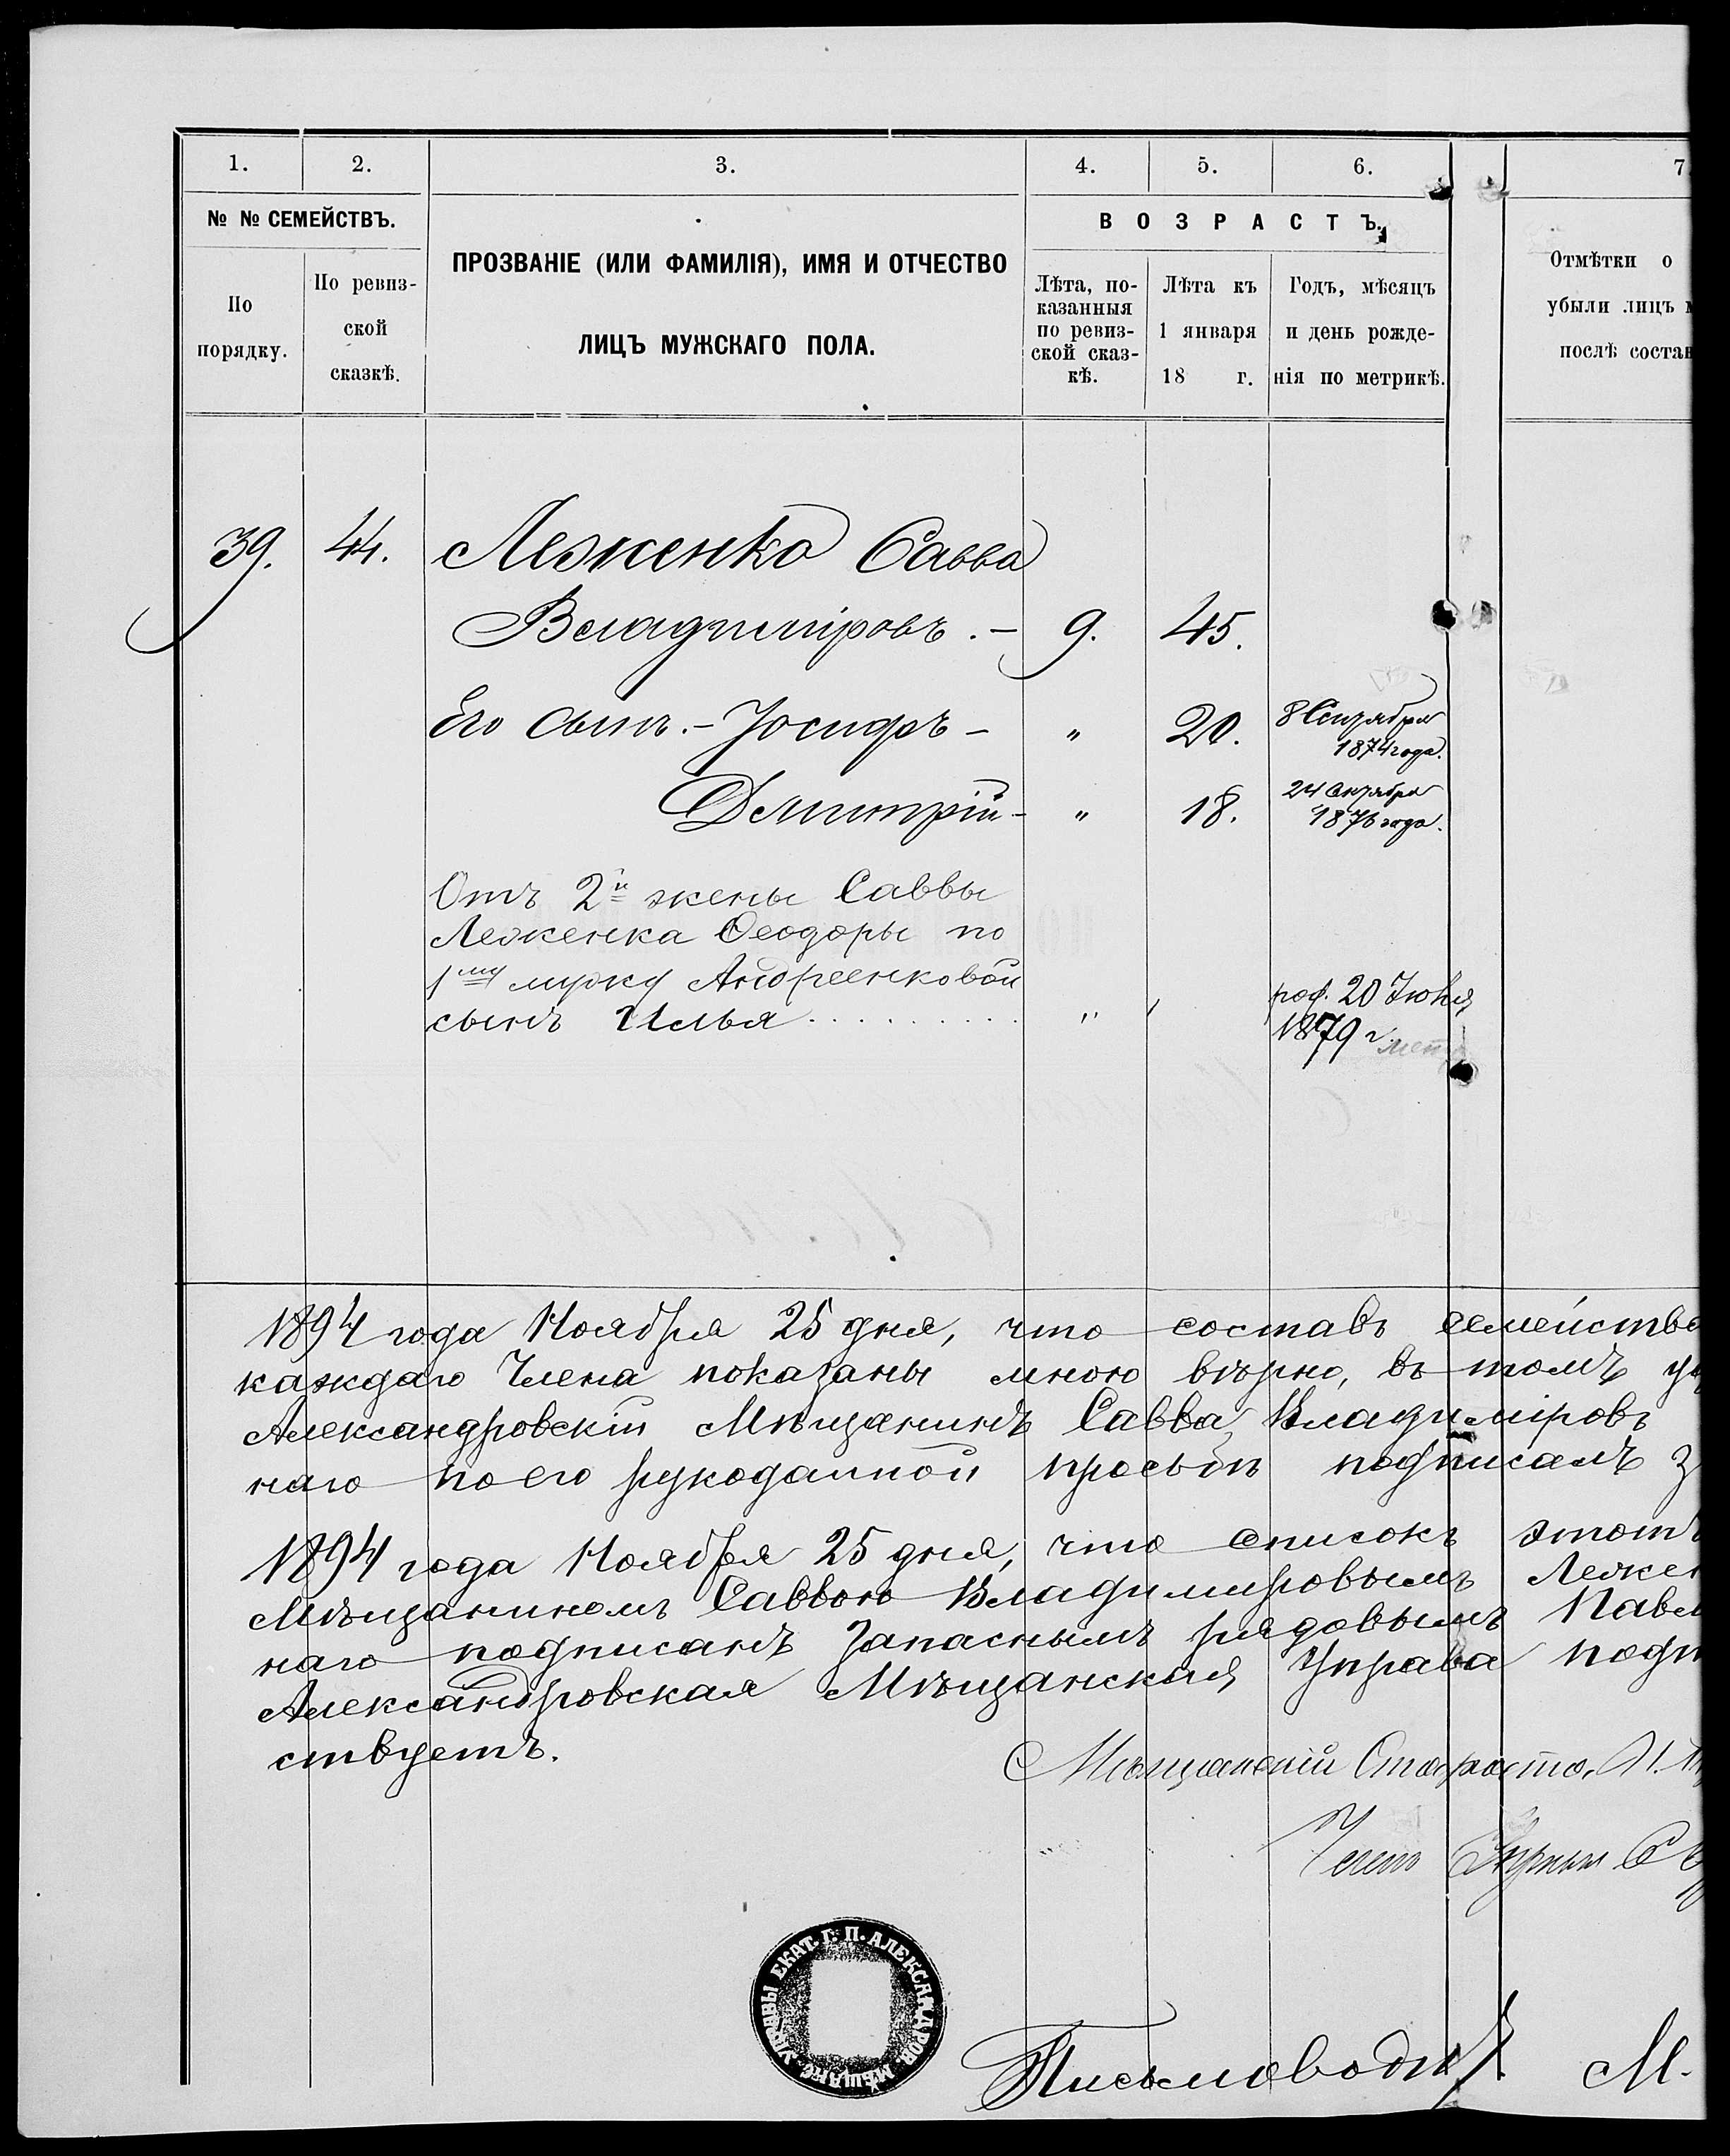 1. 2. 3. 4. 5. 6. 7
№ № СЕМЕЙСТВЪ.
По порядку.
По ревиз-
ской
сказкѣ.
ПРОЗВАНІЕ (ИЛИ ФАМИЛІЯ), ИМЯ И ОТЧЕСТВО
ЛИЦЪ МУЖСКАГО ПОЛА.
ВОЗРАСТЪ.
Лѣта, по-
казанныя
по ревиз-
ской сказ-
кѣ.
Лѣта къ
1 января
18 г.
Годъ, мѣсяцъ
и день рожде-
нія по метрикѣ.
Отмѣтки о
убыли лицъ
послѣ состав
39. 44. Леженко Савва
Владиміровъ. – 9. 45.
Его Сынъ. – Іосифъ – " 20. 8 Сентября
1874 года.
Дмитрій – " 18. 24 Октября
1876 года.
Отъ 2й жены Саввы
Леженка Ѳеодоры по
1му мужу Андреенковой
сынъ Илья . . . . . . . . . " род. 20 Іюня
1879 г.
1894 года Ноября 25 дня, что составъ семейства
каждаго Члена показаны мною вѣрно, въ томъ
Александровскій Мѣщанинъ Савва Владиміровъ
наго по его рукоданной просьбѣ подписалъ
1894 года Ноября 25 дня, что списокъ этотъ
Мѣщаниномъ Саввою Владимировымъ Лежен
наго подписанъ запаснымъ рядовымъ Павл
Александровская Мѣщанская Управа подп
ствуетъ.
Мѣщанскій Староста
Письмоводи М.
УПРАВЫ ЕКАТ. Г. П. АЛЕКСАНДРОВ. МѢЩАНС.